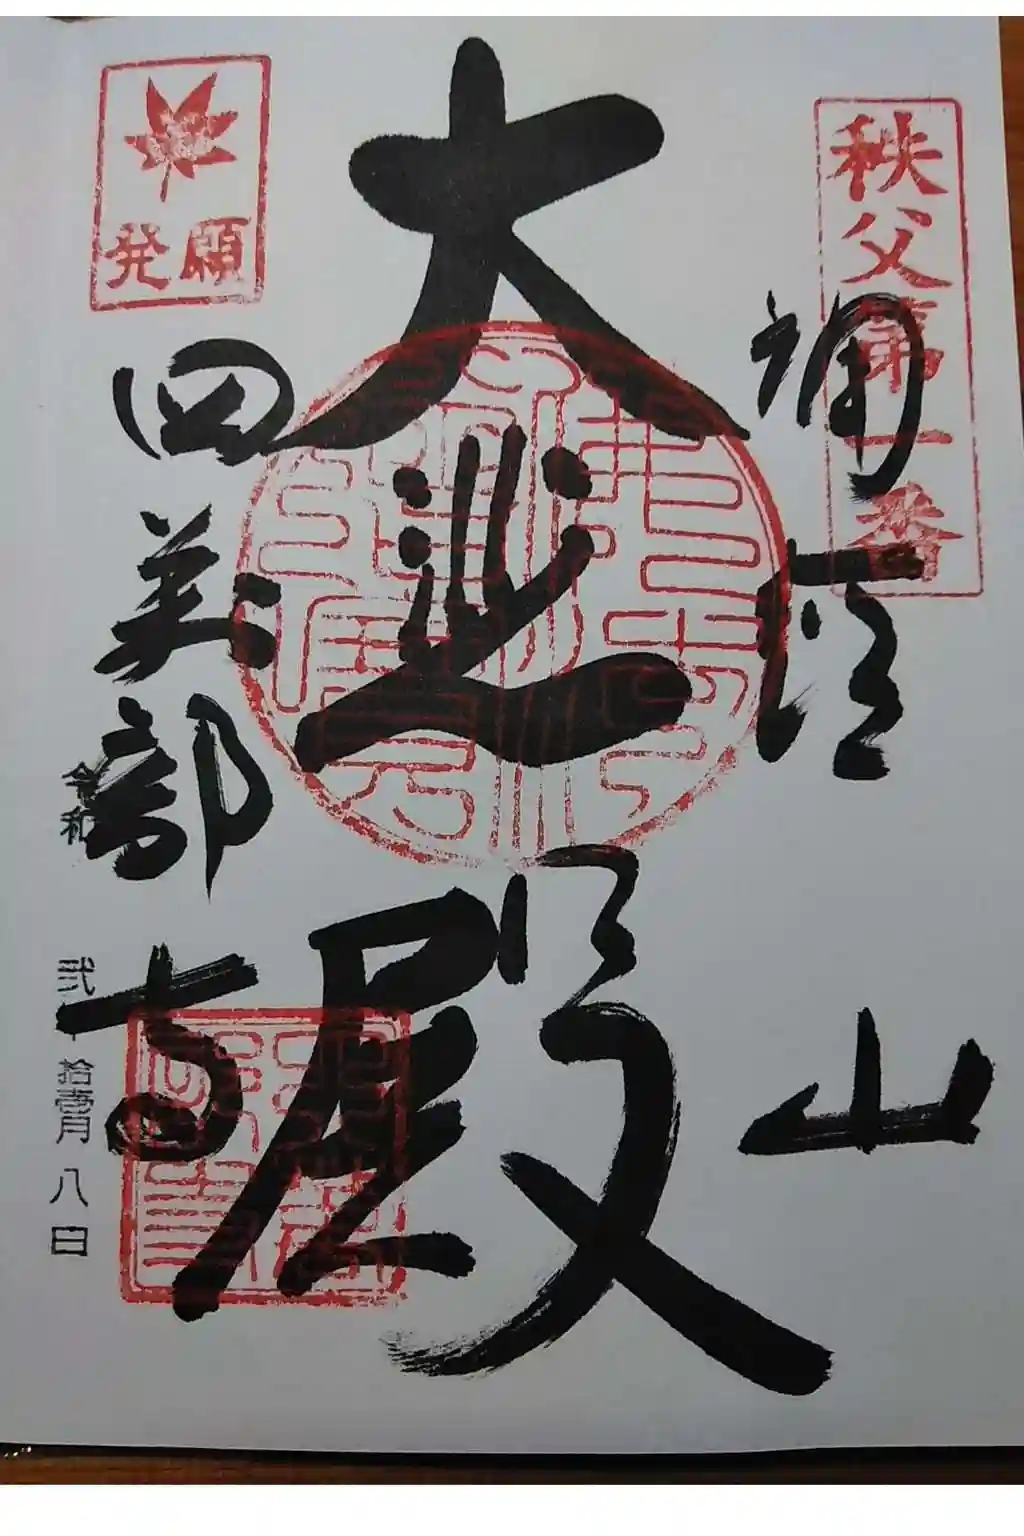 秩父第一番
誦経山
大悲殿
発願
四萬部寺
令和弐年拾壹月八日